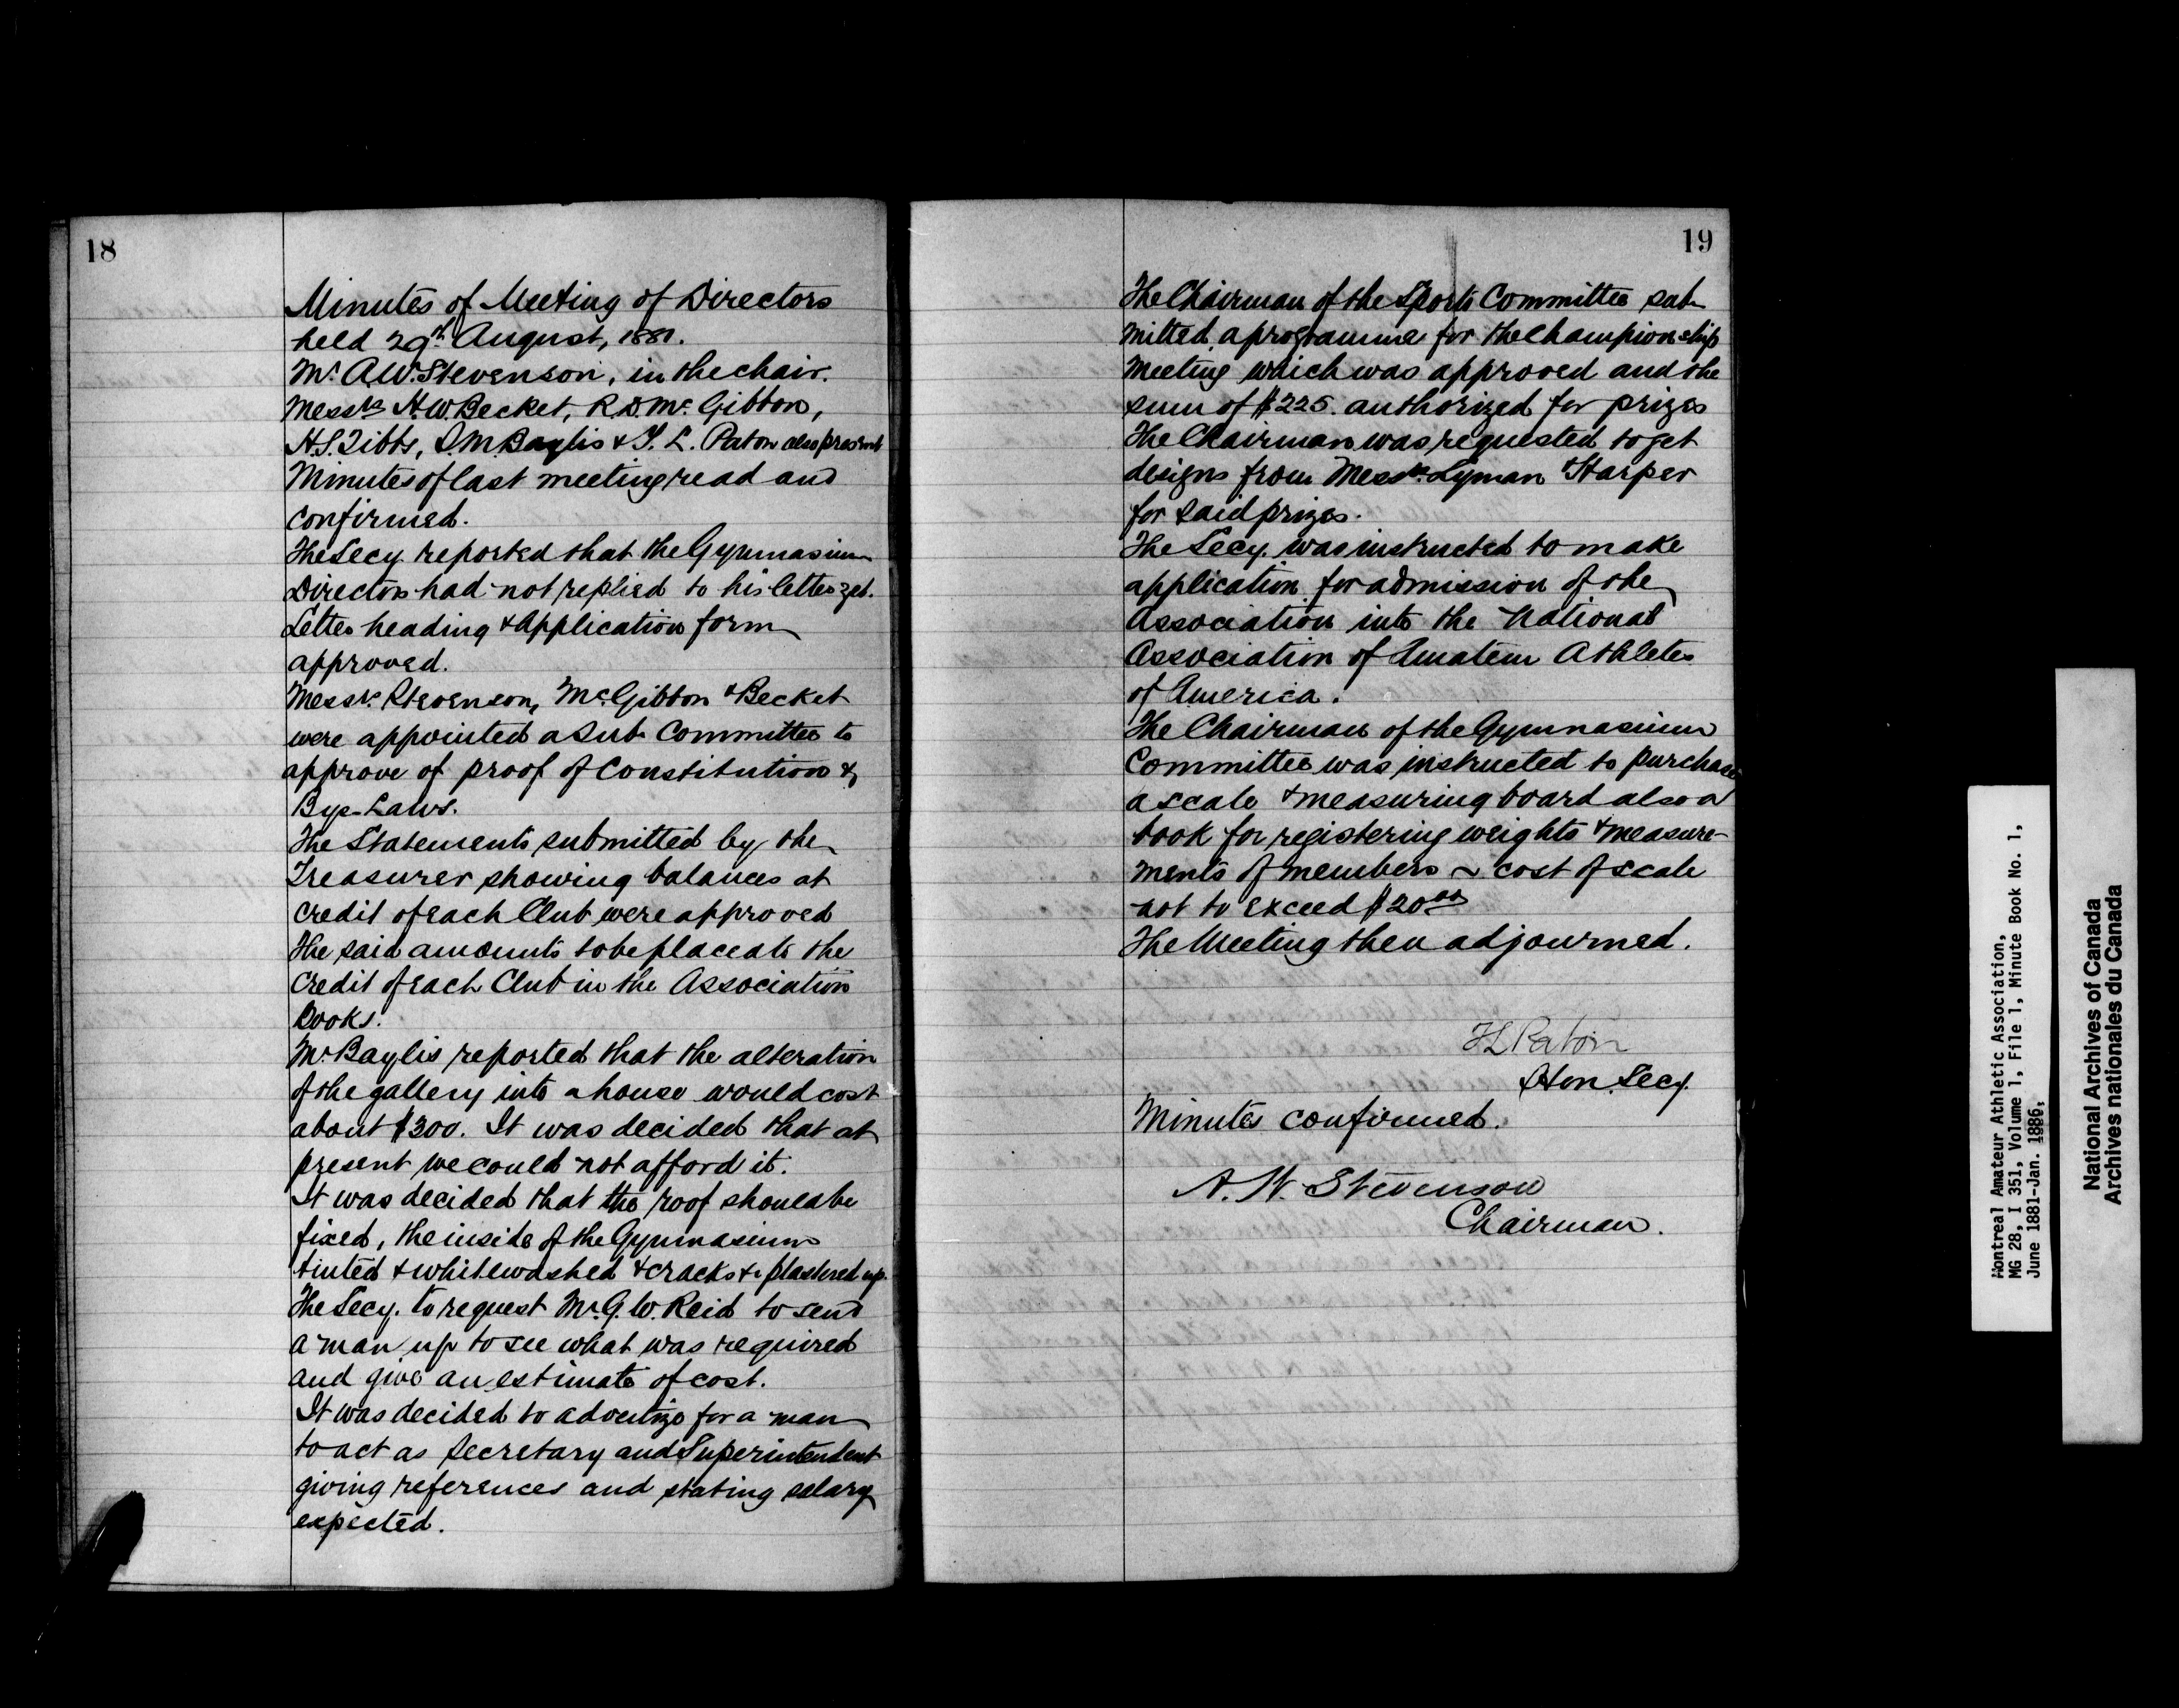 18
Minutes of Meeting of Directors
held 29th August, 1881.
Mr. A.W. Stevenson, in the chair.
Messrs H.W. Becket, R.D. McGibbon,
H.S. Tibbs, S.M. Baylis & T. L. Paton also present
Minutes of last meeting read and
confirmed.
The Secy. reported that the Gymnasium
Directors had not replied to his letter yet.
Letter heading & Application form
approved.
Messrs. Stevenson, McGibbon & Becket
were appointed a Sub Committee to
approve of proof of Constitution &
Bye-Laws.
The Statements submitted by the
Treasurer showing balances at
credit of each Club were approved
The said amounts to be placed to the
credit of each Club in the Association
Books.
Mr. Baylis reported that the alteration
of the gallery into a house would cost
about $300. It was decided that at
present we could not afford it.
It was decided that the roof should be
fixed, the inside of the Gymnasium
tinted & whitewashed & cracks &c plastered up.
The Secy. to request Mr. G.W. Reid to send
a man up to see what was required
and give an estimate of cost.
It was decided to advertize for a man
to act as Secretary and Superintendent
giving references and stating salary
expected.
19
The Chairman of the Sports Committee sub-
mitted a programme for the Championship
Meeting which was approved and the
sum of $225. authorized for prizes
The Chairman was requested to get
designs from Messrs. Lyman & Harper
for said prizes.
The Secy. was instructed to make
application for admission of the
Association into the National
Association of Amateur Athletes
of America.
The Chairman of the Gymnasium
Committee was instructed to purchase
a scale & measuring board also a
book for registering weights & measure-
ments of members ~ cost of scale
not to exceed $20.00
The Meeting then adjourned.
T L Paton
Hon. Secy.
Minutes confirmed.
A. W. Stevenson
Chairman.
Montreal Amateur Athletic Association,
MG 28, I 351, Volume 1, File 1, Minute Book No. 1,
June 1881-Jan. 1886,
National Archives of Canada
Archives nationales du Canada